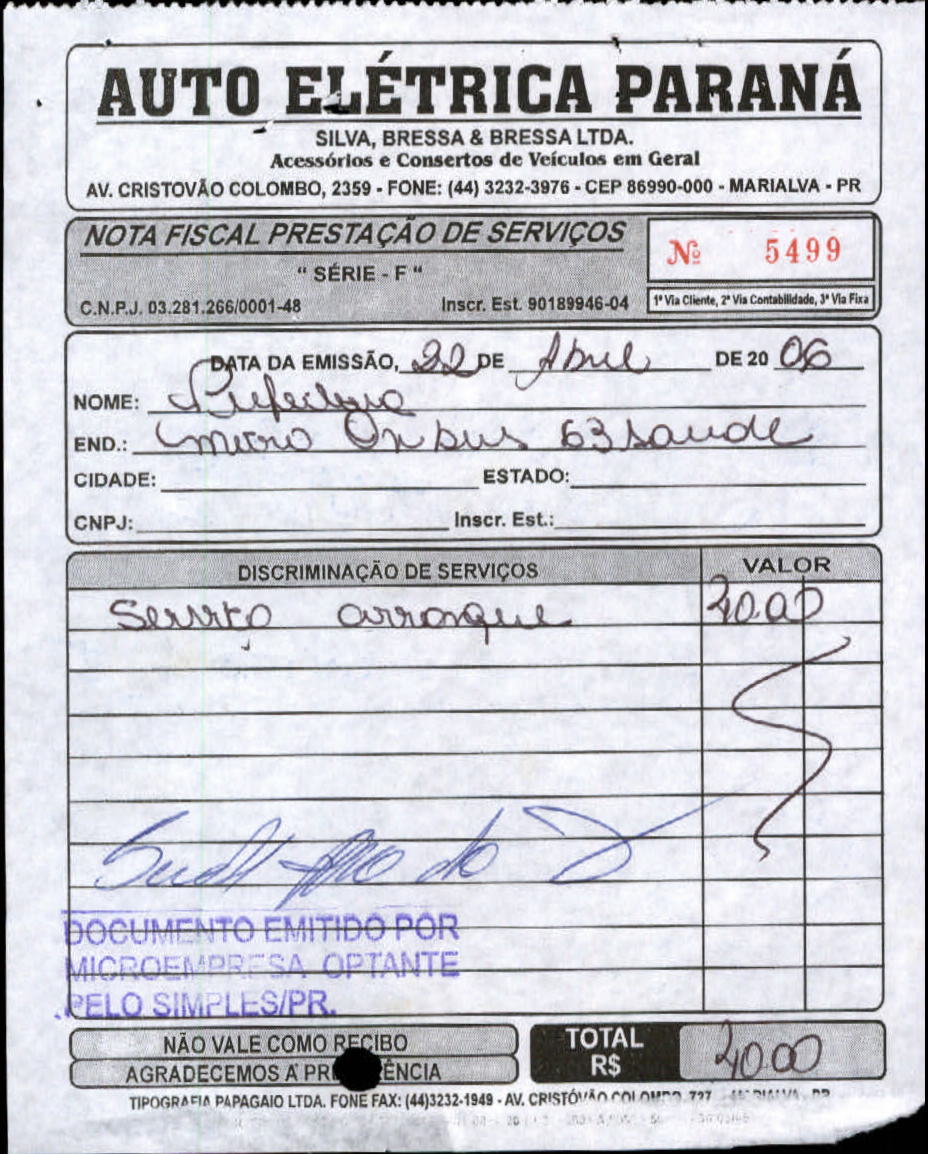 AUTO ELÉTRICA PARANÁ
SILVA, BRESSA & BRESSA LTDA.
Acessórios e Consertos de Veículos em Geral
AV. CRISTOVÃO COLOMBO, 2359 - FONE: (44) 3232-3976 - CEP 86990-000 - MARIALVA - PR
NOTA FISCAL PRESTAÇÃO DE SERVIÇOS
" SÉRIE - F "
Nº 5499
C.N.P.J. 03.281.266/0001-48 Inscr. Est. 90189946-04
1ª Via Cliente, 2ª Via Contabilidade, 3ª Via Fixa
DATA DA EMISSÃO, 22 DE Abril DE 20 06
NOME: Prefeitura
END.: micro Onibus 63 saude
CIDADE: ESTADO:
CNPJ: Inscr. Est.:
DISCRIMINAÇÃO DE SERVIÇOS VALOR
Serviço arranque 40.00
DOCUMENTO EMITIDO POR
MICROEMPRESA OPTANTE
PELO SIMPLES/PR.
NÃO VALE COMO RECIBO
AGRADECEMOS A PR ÊNCIA
TOTAL
R$ 40.00
TIPOGRAFIA PAPAGAIO LTDA. FONE FAX: (44)3232-1949 - AV. CRISTÓVÃO COLOMBO, 727 - MARIALVA - PR